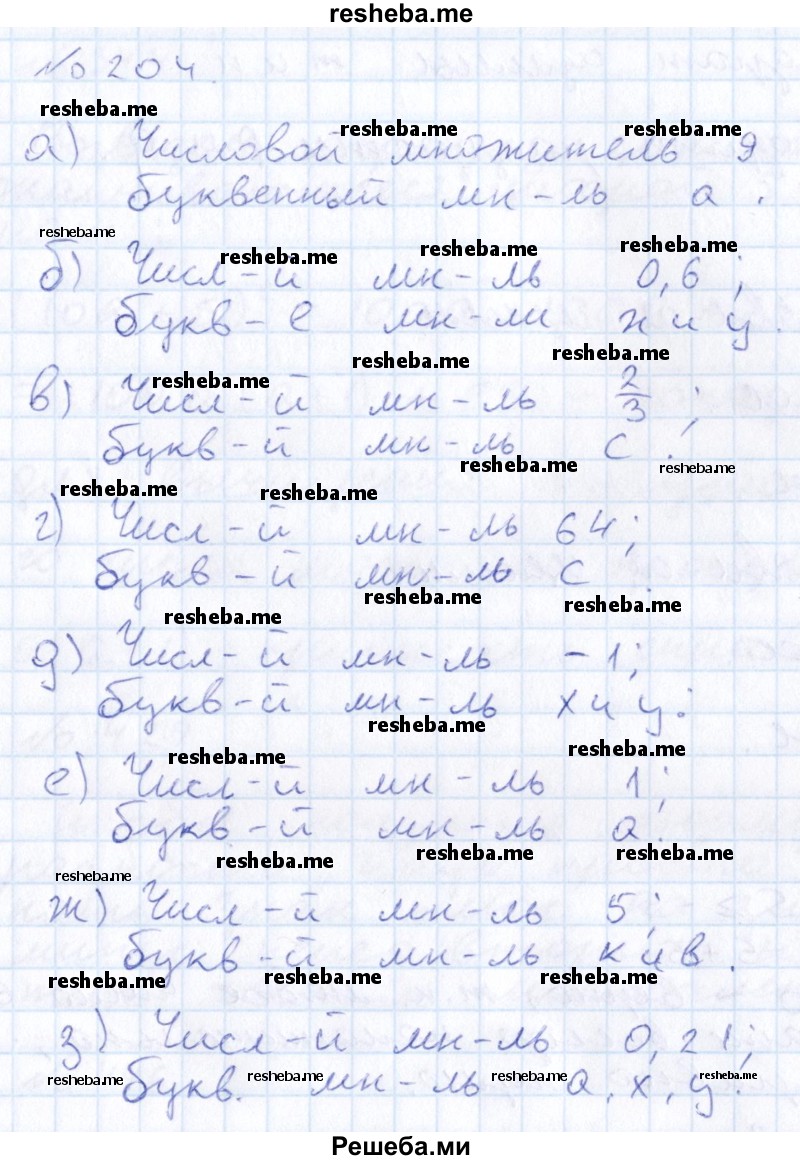 resheba.me
№ 204.
resheba.me
resheba.me resheba.me
а) Числовой множитель 9
буквенный мн-ль а.
resheba.me
resheba.me resheba.me resheba.me
б) Числ-й мн-ль 0,6;
букв-е мн-ли х и у.
resheba.me resheba.me
resheba.me
в) Числ-й мн-ль 2/3;
букв-й мн-ль с.
resheba.me resheba.me
resheba.me resheba.me
г) Числ-й мн-ль 64;
букв-й мн-ль с.
resheba.me resheba.me
resheba.me
д) Числ-й мн-ль -1;
букв-й мн-ль х и у.
resheba.me
resheba.me resheba.me
е) Числ-й мн-ль 1;
букв-й мн-ль а.
resheba.me resheba.me resheba.me
resheba.me
ж) Числ-й мн-ль 5;
букв-й мн-ль к и в.
resheba.me resheba.me resheba.me
з) Числ-й мн-ль 0,21;
resheba.me resheba.me resheba.me resheba.me
букв. мн-ль а, х, у.
Решеба.ми